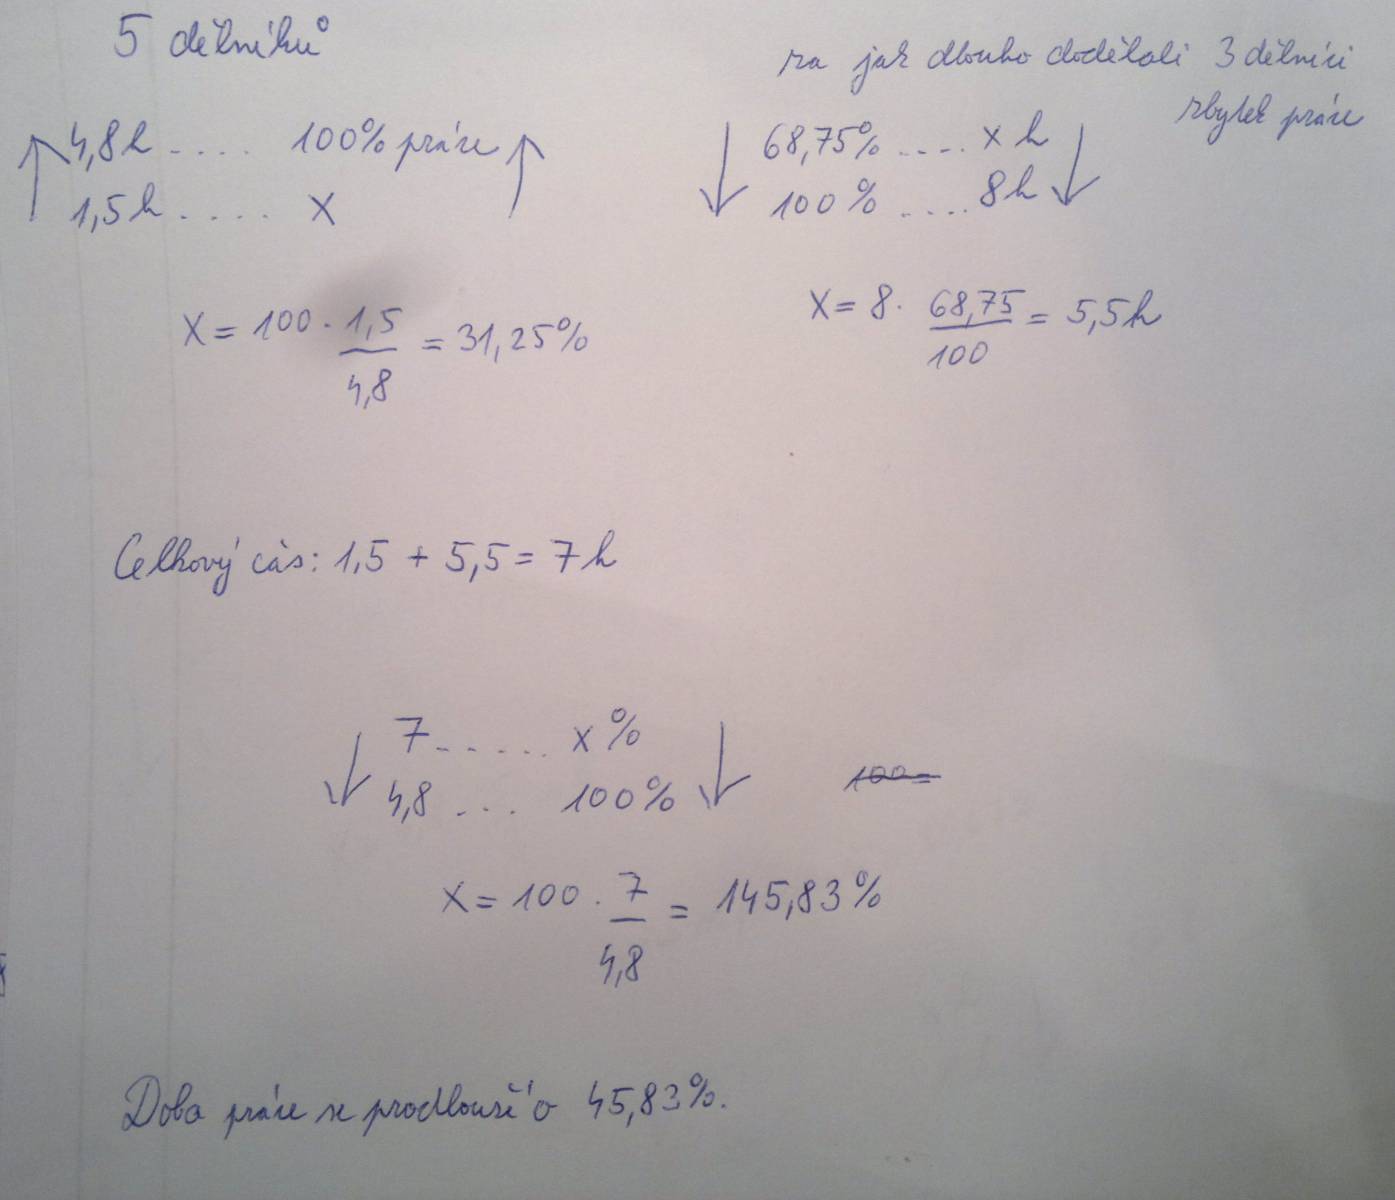 5 dělníků
4,8h .... 100% práce
1,5h .... X
X = 100 · 1,5/4,8 = 31,25%
za jak dlouho dodělali 3 dělníci
zbytek práce
68,75% .... x h
100% .... 8h
X = 8 · 68,75/100 = 5,5h
Celkový čas: 1,5 + 5,5 = 7h
7 ..... x%
4,8 ... 100%
100=
X = 100 · 7/4,8 = 145,83%
Doba práce se prodlouží o 45,83%.